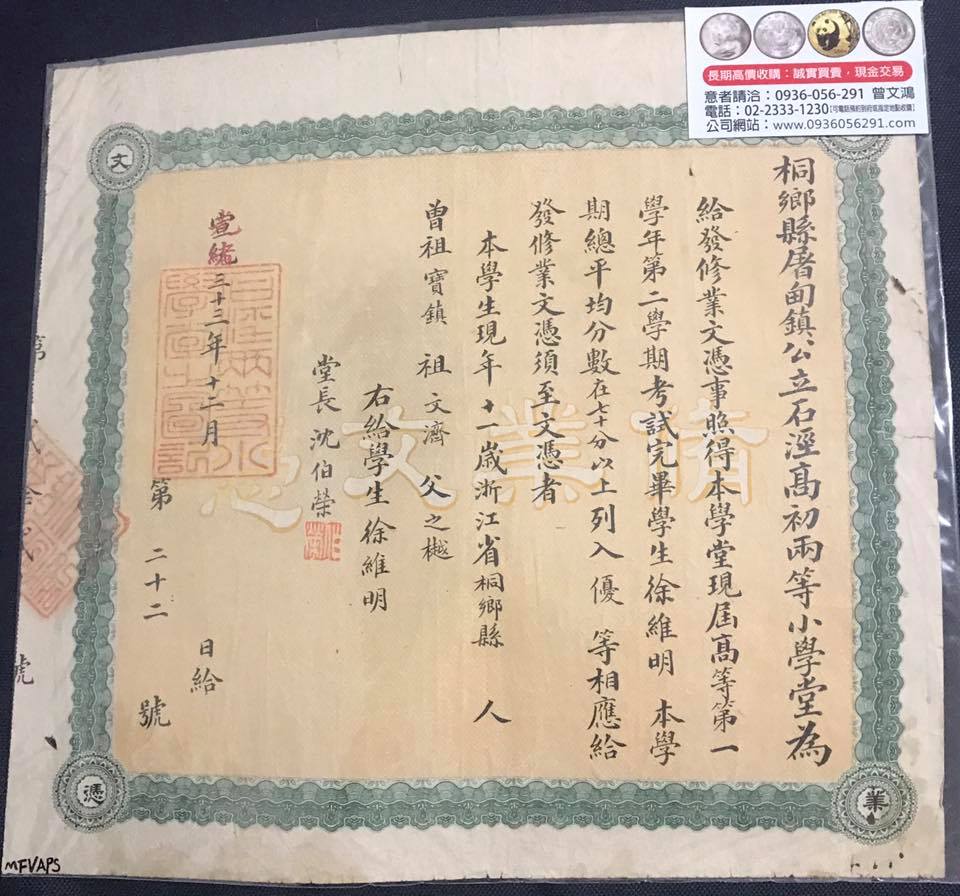 長期高價收購：誠實買賣，現金交易
意者請洽：0936-056-291 曾文鴻
電話：02-2333-1230【可電話預約到府或指定地點收購】
公司網站：www.0936056291.com
桐鄉縣屠甸鎮公立石涇高初兩等小學堂為
給發修業文憑事照得本學堂現屆高等第一
學年第二學期考試完畢學生徐維明 本學
期總平均分數在七十分以上列入 優 等相應給
發修業文憑須至文憑者
本學生現年十一歲浙江省桐鄉縣 人
曾祖寶鎮 祖文濟 父之樾
右給學生徐維明
堂長沈伯榮
三十三年十二月 日給
第 二十二 號
修業文憑
文
憑
業
第
號
MFVAPS